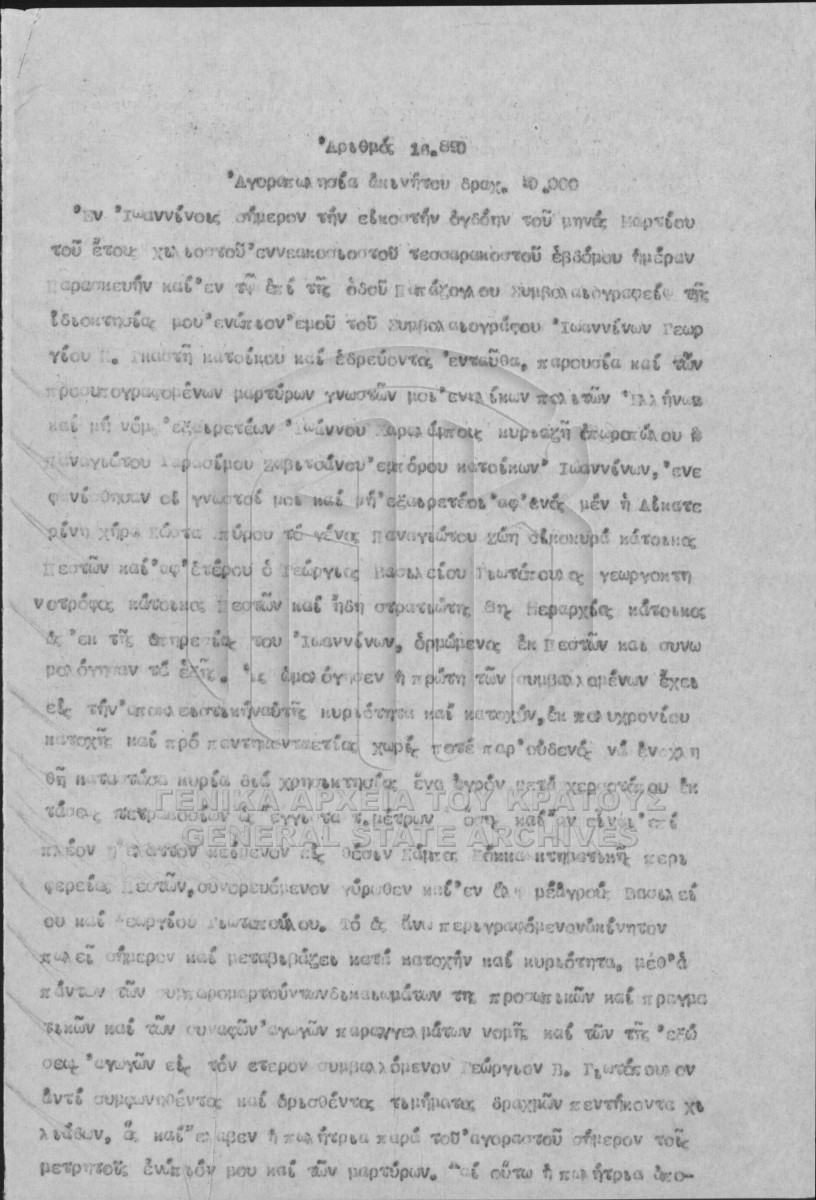 Ἀριθμός 16.890
Ἀγοραπωλησία ἀκινήτου δραχ. 50.000
Ἐν Ἰωαννίνοις σήμερον τήν εἰκοστήν ὀγδόην τοῦ μηνός Μαρτίου
τοῦ ἔτους χιλιοστοῦ ἐννεακοσιοστοῦ τεσσαρακοστοῦ ἑβδόμου ἡμέραν
Παρασκευήν καί ἐν τῷ ἐπί τῆς ὁδοῦ Παπάζογλου Συμβολαιογραφείῳ τῆς
ἰδιοκτησίας μου ἐνώπιον ἐμοῦ τοῦ Συμβολαιογράφου Ἰωαννίνων Γεωρ
γίου Γκαστῆ κατοίκου καί ἑδρεύοντος ἐνταῦθα, παρουσία καί τῶν
προσυπογραφομένων μαρτύρων γνωστῶν μοι ἐνηλίκων πολιτῶν Ἑλλήνων
καί μή νόμῳ ἐξαιρετέων Ἰωάννου Χαραλάμποις κυριαζῆ ὀπωροπώλου
Παναγιώτου Γαρασίμου Ζαβιτσάνου ἐμπόρου κατοίκων Ἰωαννίνων, ἐνε
φανίσθησαν οἱ γνωστοί μοι καί μή ἐξαιρετέοι ἀφ' ἑνός μέν ἡ Αἰκατε
ρίνη χήρα Κώστα Σπύρου τό γένος Παναγιώτου Ζώη οἰκοκυρά κάτοικος
Πεστῶν καί ἀφ' ἑτέρου ὁ Γεώργιος Βασιλείου Γιωτόπουλος γεωργοκτη
νοτρόφος κάτοικος Πεστῶν καί ἤδη στρατιώτης 8ης Μεραρχίας κάτοικος
ὡς ἐκ τῆς ὑπηρεσίας του Ἰωαννίνων, ὁρμώμενος ἐκ Πεστῶν και συνω
μολόγησαν τά ἑξῆς. Ὡς ὡμολόγησεν ἡ πρώτη τῶν συμβαλλομένων ἔχει
εἰς τήν ἀποκλειστικήναὐτῆς κυριότητα καί κατοχήν, ἐκ πολυχρονίου
κατοχῆς καί πρό πεντηκονταετίας χωρίς ποτέ παρ' οὐδενός νά ἐνοχλη
θῇ καταστᾶσα κυρία διά χρησικτησίας ἕνα ἀγρόν μετά χερσοτόπου ἐκ
τάσεως τετρακοσίων ὡς ἔγγιστα τ. μέτρων ὅση καί ἄν εἶναι ἐπί
πλέον ἤ ἔλαττον κείμενον εἰς θέσιν Κόκκα κτηματικῆς περι
φερείας Πεστῶν, συνορευόμενον γύρωθεν καί ἐν ὅλῳ μέἀγρούς Βασιλεί
ου καί Γεωργίου Γιωτοπούλου. Τό ὡς ἄνω περιγραφόμενονἀκίνητον
πωλεῖ σήμερον καί μεταβιβάζει κατά κατοχήν καί κυριότητα, μέθ' ἁ
πάντων τῶν συμπαρομαρτούντωνδικαιωμάτων της προσωπικῶν καί πραγμα
τικῶν καί τῶν συναφῶν ἀγωγῶν παραγγελμάτων νομῆς καί τῶν τῆς ἐξώ
σεως ἀγωγῶν εἰς τόν ετερον συμβαλλόμενον Γεώργιον Β. Γιωτόπουλον
ἀντί συμφωνηθέντος καί ὁρισθέντος τιμήματος δραχμῶν πεντήκοντα χι
λιάδων, ἅς καί ἔλαβεν ἡ πωλήτρια παρά τοῦ ἀγοραστοῦ σήμερον τοῖς
μετρητοῖς ἐνώπιόν μου καί τῶν μαρτύρων. Καί οὕτω ἡ πωλήτρια ἀπο-
ΓΕΝΙΚΑ ΑΡΧΕΙΑ ΤΟΥ ΚΡΑΤΟΥΣ
GENERAL STATE ARCHIVES